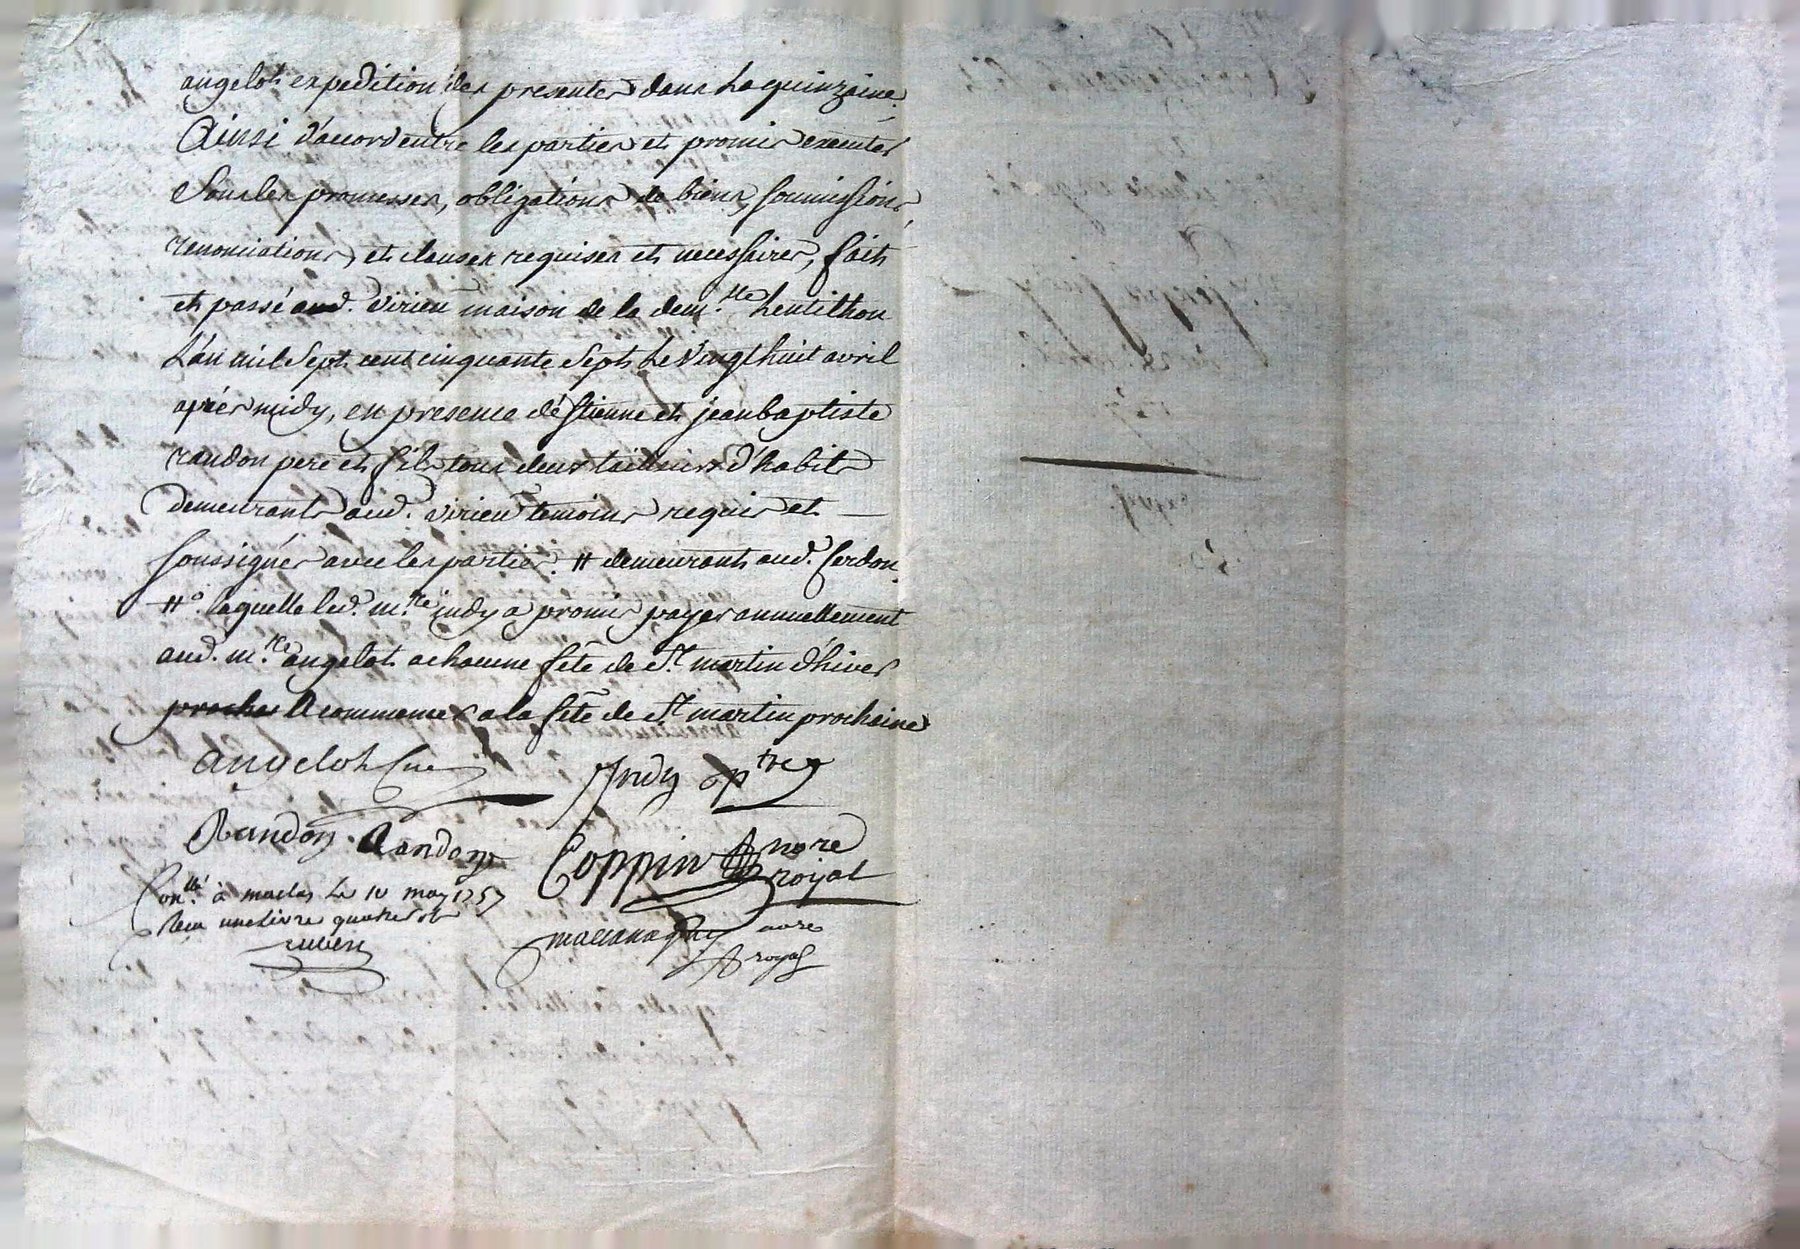 angelot expedition des presentes dans la quinzaine
Ainsi d'accord entre les parties et promis executer
Sous les promesses, obligations de biens, soumissions
renonciations, et clauses requises et necessaires, fait
et passé aud. virieu maison de la dem.lle Lentilhon
L'an mil sept cent cinquante sept Le vingt huit avril
après midy, en presence d'éstienne et jean baptiste
randon pere et fils tous deux tailleurs d'habits
demeurants aud. virieu temoins requis et
soussignés avec les parties. # demeurants aud.
#° laquelle led. m.re judy a promis payer annuellement
aud. m.re angelot a chacune fête de St martin d'hiver
proches A commencer a la fête de St martin prochaine
angelot curé
Judy ptre
Randon Randon
Coppin nore
royal
Conllé à maclas le 10 may 1757
Reçu une livre quatre s
nore
royal